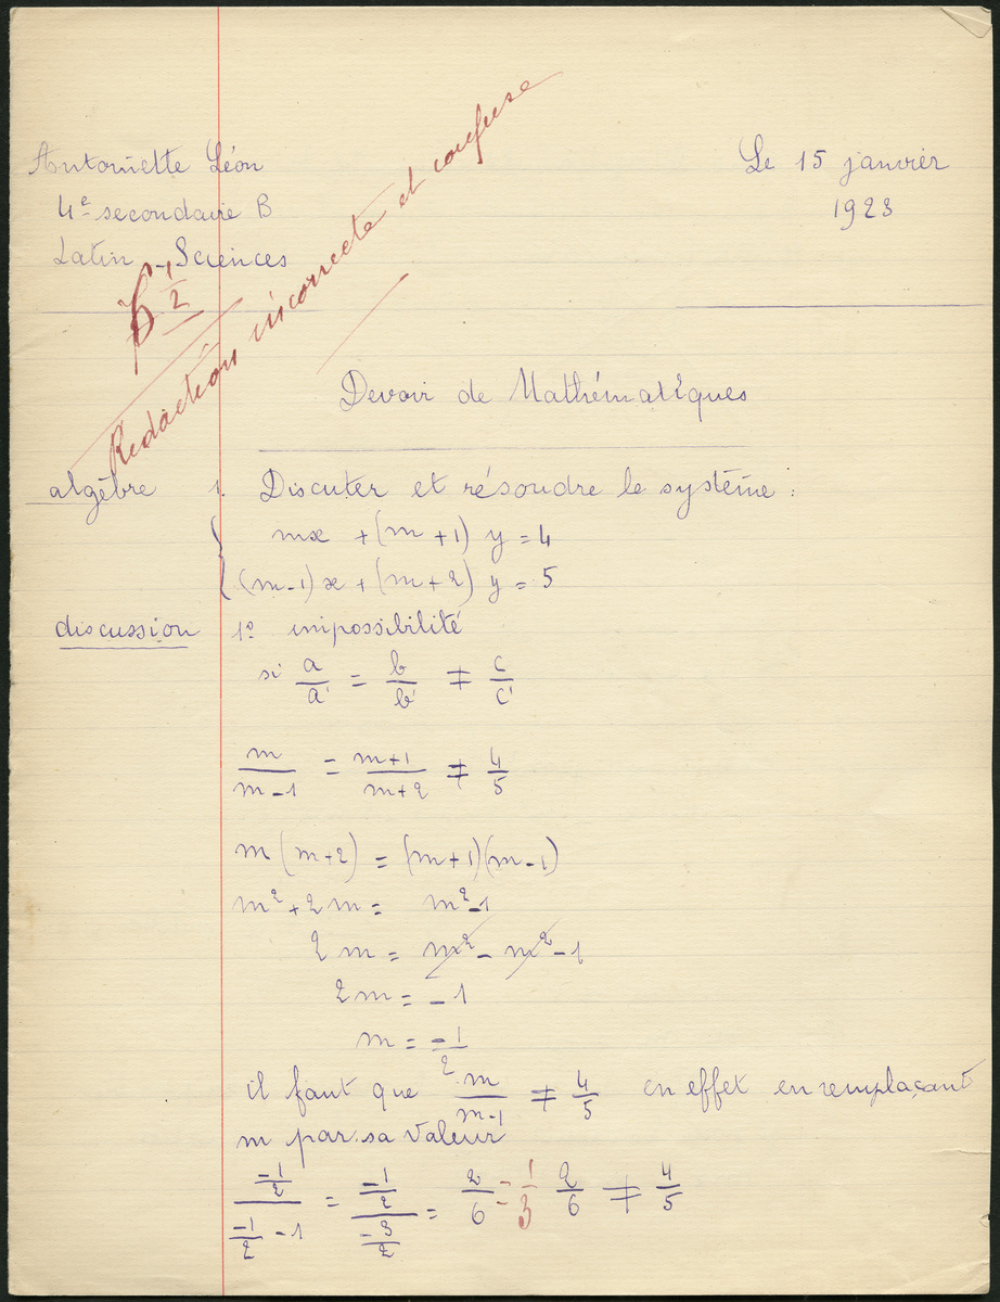 Antoinette Léon
Le 15 janvier
4e secondaire B
1923
Latin - Sciences
5 1/2
Rédaction incorrecte et confuse
Devoir de Mathématiques
algèbre 1. Discuter et résoudre le système :
mx + (m+1) y = 4
(m-1)x + (m+2) y = 5
discussion 1º impossibilité
si a/a' = b/b' ≠ c/c'
m/(m-1) = (m+1)/(m+2) ≠ 4/5
m(m+2) = (m+1)(m-1)
m² + 2m = m²-1
2m = m² - m² - 1
2m = -1
m = -1/2
il faut que m/(m-1) ≠ 4/5 en effet en remplaçant
m par sa valeur
(-1/2)/(-1/2 - 1) = (-1/2)/(-3/2) = 2/6 = 1/3 2/6 ≠ 4/5